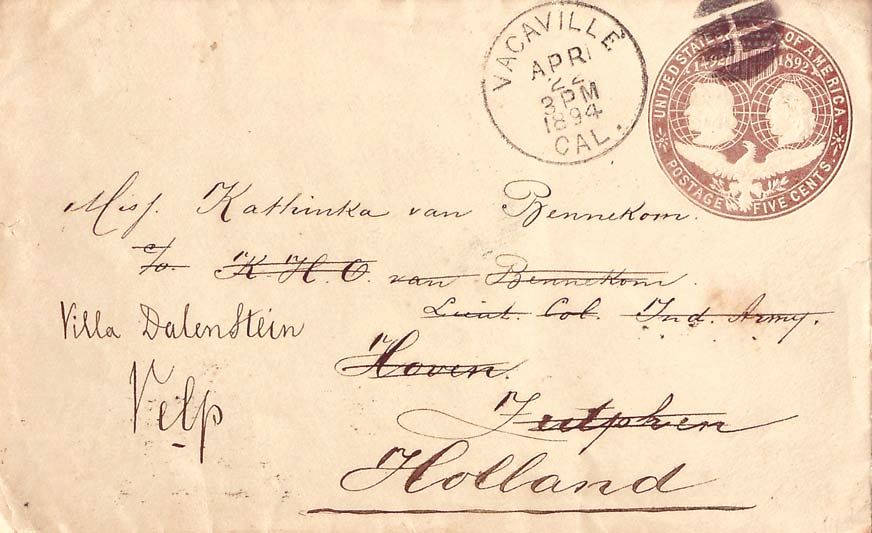 VACAVILLE
APR
22
3 PM
1894
CAL.
UNITED STATES OF AMERICA
1492 1892
POSTAGE FIVE CENTS
Miss. Kathinka van Bennekom.
c/o. K. H. C. van Bennekom.
Lieut. Col. Ind. Army.
Villa Dalenstein
Hoven.
Velp
Zutphen
Holland